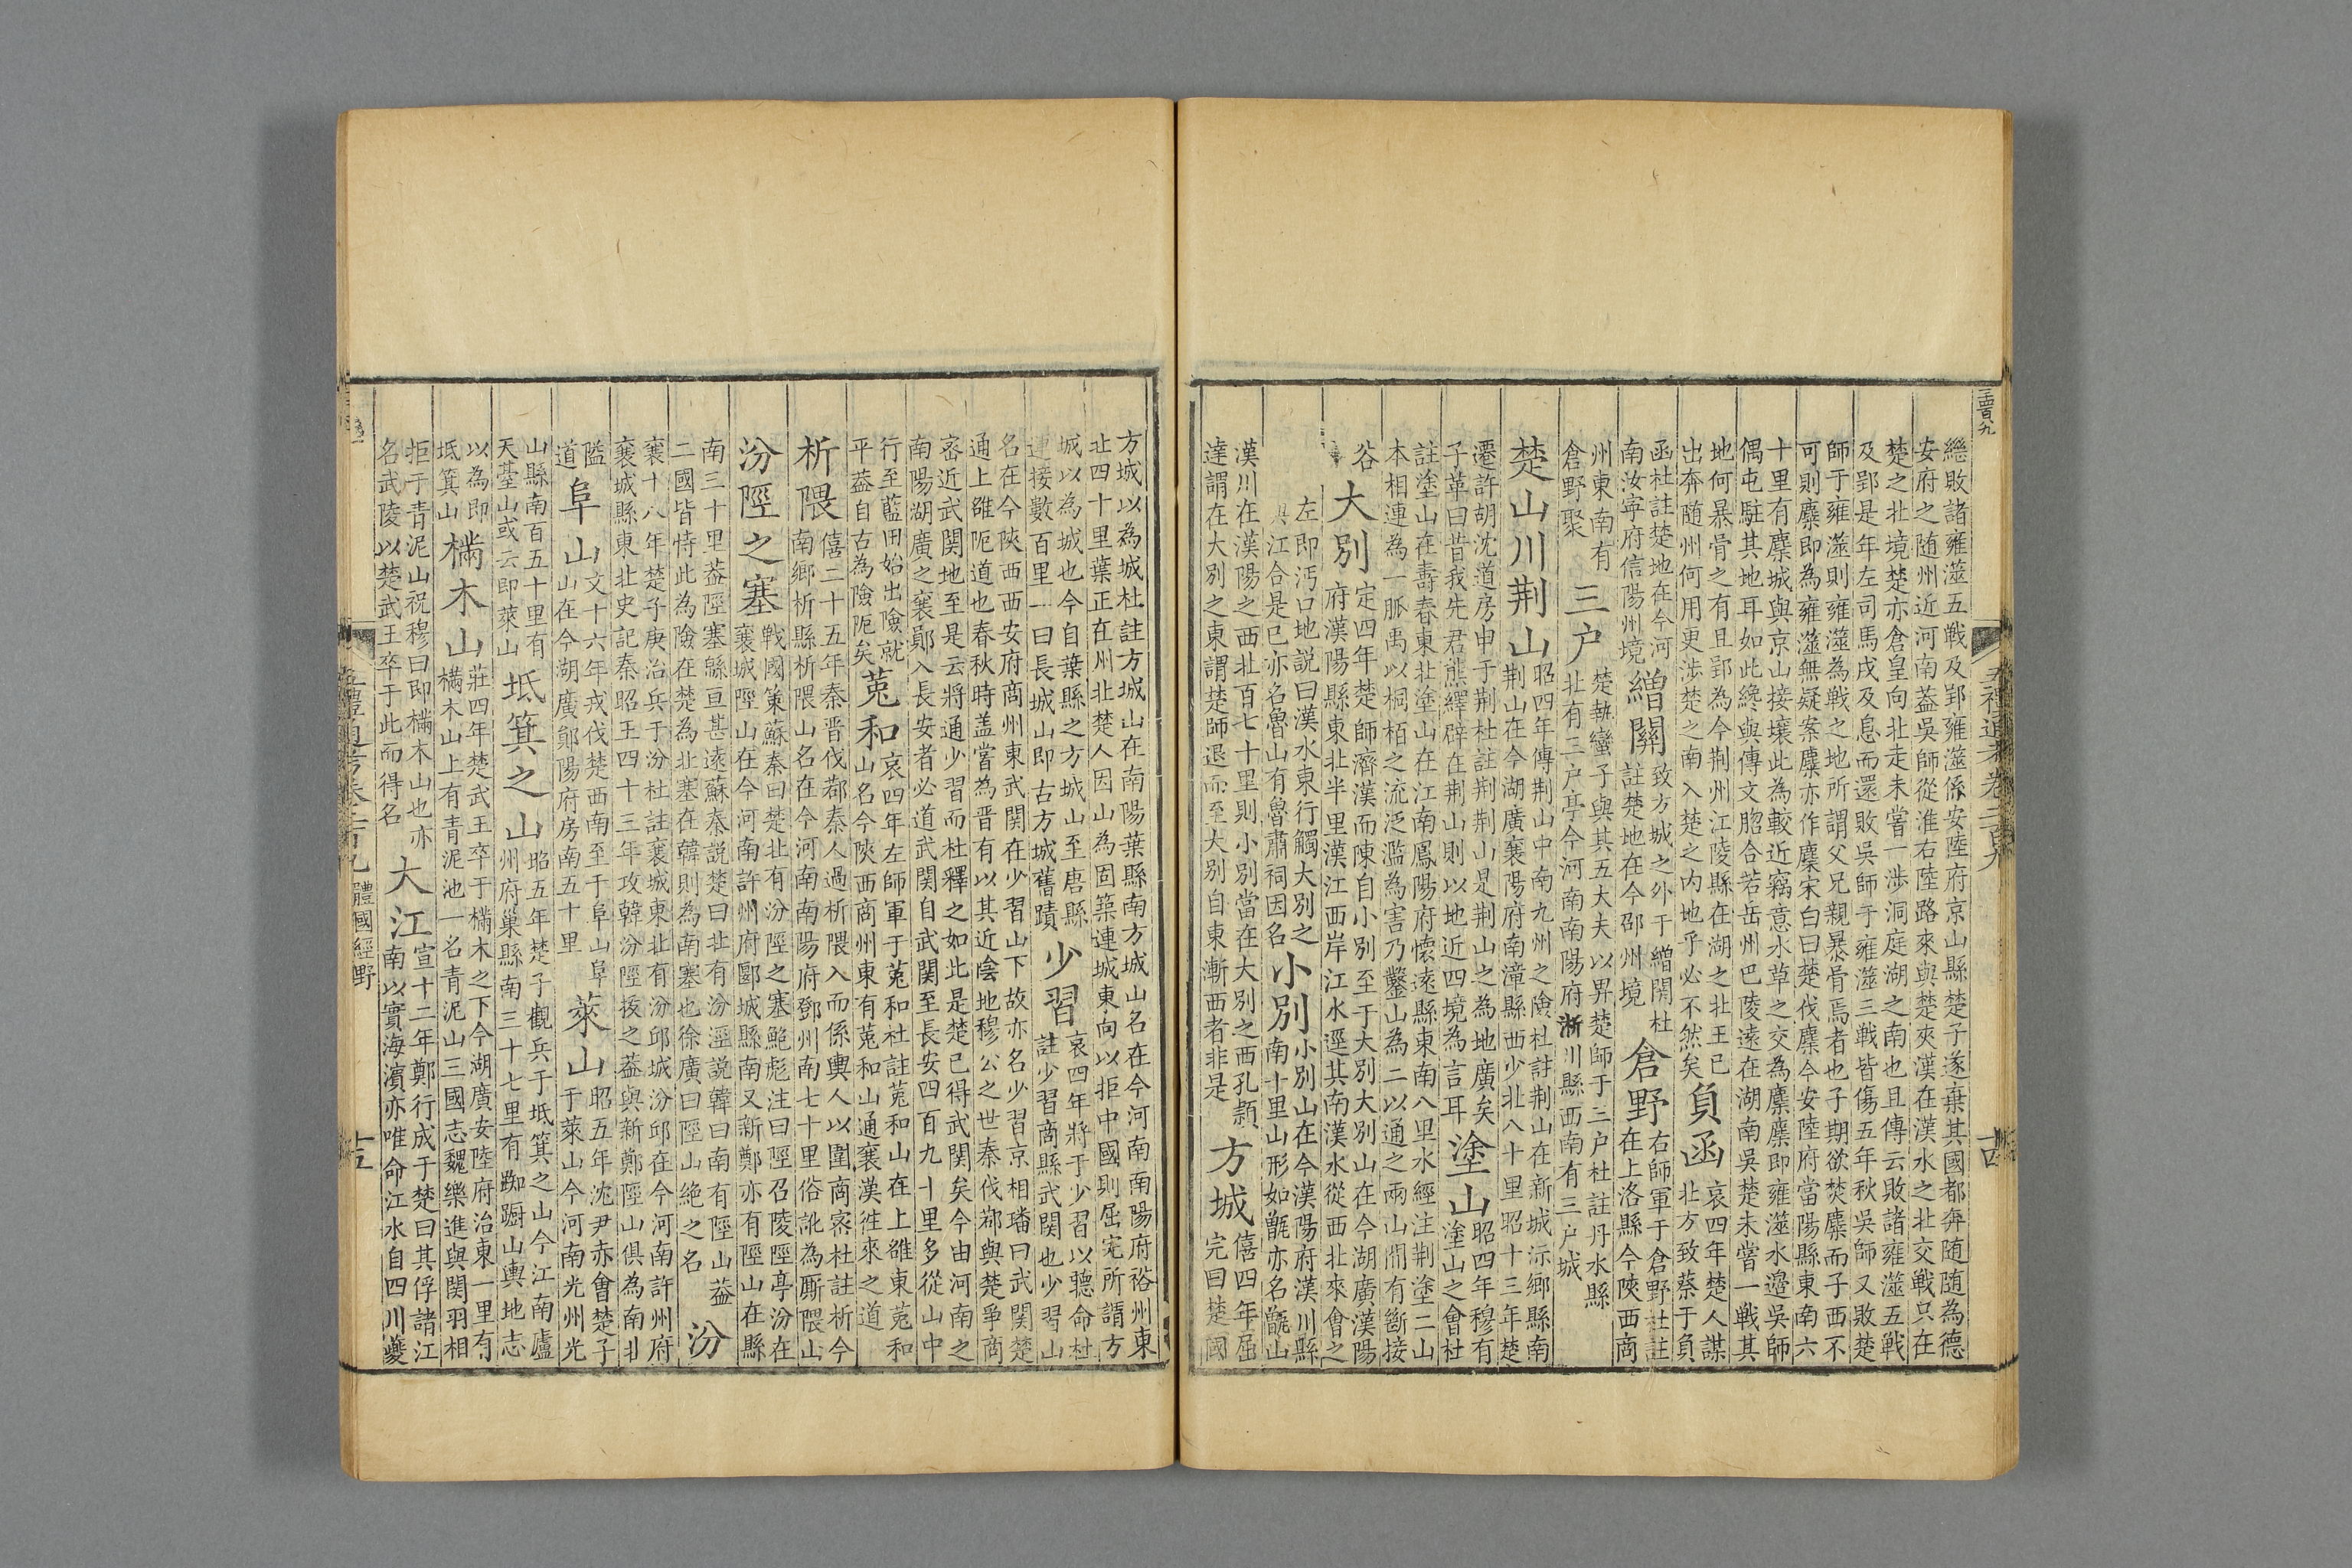 五禮通考卷二百九
十四
繼敗諸雍澨五戰及郢雍澨係安陸府京山縣楚子遂棄其國都奔随随為德
安府之随州近河南葢吳師從淮右陸路來與楚夾漢在漢水之北交戰只在
楚之北境楚亦倉皇向北走未嘗一渉洞庭湖之南也且傳云敗諸雍澨五戰
及郢是年左司馬戌及息而還敗吳師于雍澨三戰皆傷五年秋吳師又敗楚
師于雍澨則雍澨為戰之地所謂父兄親暴骨焉者也子期欲焚麇而子西不
可則麇即為雍澨無疑案麇亦作麋宋白曰楚伐麇今安陸府當陽縣東南六
十里有麇城與京山接壤此為較近竊意水草之交為麋麋即雍澨水邊吳師
偶屯駐其地耳如此纔與傳文脗合若岳州巴陵遠在湖南吳楚未嘗一戰其
地何暴骨之有且郢為今荆州江陵縣在湖之北王已
出奔随州何用更渉楚之南入楚之内地乎必不然矣
負函
哀四年楚人謀
北方致蔡于負
函杜註楚地在今河
南汝寧府信陽州境
繒關
致方城之外于繒関杜
註楚地在今邵州境
倉野
右師軍于倉野杜註
在上洛縣今陜西商
州東南有
倉野聚
三户
楚執蠻子與其五大夫以畀楚師于三户杜註丹水縣
北有三户亭今河南南陽府淅川縣西南有三户城
楚山川荆山
昭四年傳荆山中南九州之險杜註荆山在新城沶鄉縣南
荆山在今湖廣襄陽府南漳縣西少北八十里昭十三年楚
遷許胡沈道房申于荆杜註荆荆山是荆山之為地廣矣
子革曰昔我先君熊繹辟在荆山則以地近四境為言耳
塗山
昭四年穆有
塗山之會杜
註塗山在壽春東北塗山在江南鳳陽府懷遠縣東南八里水經注荆塗二山
本相連為一脈禹以桐栢之流泛濫為害乃鑿山為二以通之兩山間有斷接
谷
大别
定四年楚師濟漢而陳自小别至于大别大别山在今湖廣漢陽
府漢陽縣東北半里漢江西岸江水逕其南漢水從西北來會之
左即沔口地説曰漢水東行觸大别之
江合是已亦名魯山有魯肅祠因名
小别
小别山在今漢陽府漢川縣
南十里山形如甑亦名甑山
漢川在漢陽之西北百七十里則小别當在大别之西孔穎
達謂在大别之東謂楚師退而至大别自東漸西者非是
方城
僖四年屈
完曰楚國
方城以為城杜註方城山在南陽葉縣南方城山名在今河南南陽府裕州東
北四十里葉正在州北楚人因山為固築連城東向以拒中國則屈完所謂方
城以為城也今自葉縣之方城山至唐縣
連接數百里一曰長城山即古方城舊蹟
少習
哀四年將于少習以聽命杜
註少習商縣武関也少習山
名在今陜西西安府商州東武関在少習山下故亦名少習京相璠曰武関楚
通上雒阨道也春秋時盖嘗為晋有以其近陰地穆公之世秦伐鄀與楚爭商
宻近武関地至是云將通少習而杜釋之如此是楚已得武関矣今由河南之
南陽湖廣之襄鄖入長安者必道武関自武関至長安四百九十里多從山中
行至藍田始出險就
平葢自古為險阨矣
菟和
哀四年左師軍于菟和杜註菟和山在上雒東菟和
山名今陜西商州東有菟和山通襄漢徃來之道
析隈
僖二十五年秦晋伐鄀秦人過析隈入而係輿人以圍商宻杜註析今
南鄉析縣析隈山名在今河南南陽府鄧州南七十里俗訛為厮隈山
汾陘之塞
戰國策蘇秦曰楚北有汾陘之塞鮑彪注曰陘召陵陘亭汾在
襄城陘山在今河南許州府郾城縣南又新鄭亦有陘山在縣
南三十里葢陘塞緜亘甚遠蘇秦説楚曰北有汾陘説韓曰南有陘山葢
二國皆恃此為險在楚為北塞在韓則為南塞也徐廣曰陘山絶之名
汾
襄十八年楚子庚治兵于汾杜註襄城東北有汾邱城汾邱在今河南許州府
襄城縣東北史記秦昭王四十三年攻韓汾陘拔之葢與新鄭陘山俱為南北
隘
道
阜山
文十六年戎伐楚西南至于阜山阜
山在今湖廣鄖陽府房南五十里
萊山
昭五年沈尹赤會楚子
于萊山今河南光州光
山縣南百五十里有
天䑓山或云即萊山
坻箕之山
昭五年楚子觀兵于坻箕之山今江南廬
州府巢縣南三十七里有踟蹰山輿地志
以為即
坻箕山
樠木山
莊四年楚武王卒于樠木之下今湖廣安陸府治東一里有
樠木山上有青泥池一名青泥山三國志魏樂進與関羽相
拒于青泥山祝穆曰即樠木山也亦
名武陵以楚武王卒于此而得名
大江
宣十二年鄭行成于楚曰其俘諸江
南以實海濱亦唯命江水自四川夔
五禮通考卷二百九
體國經野
十五